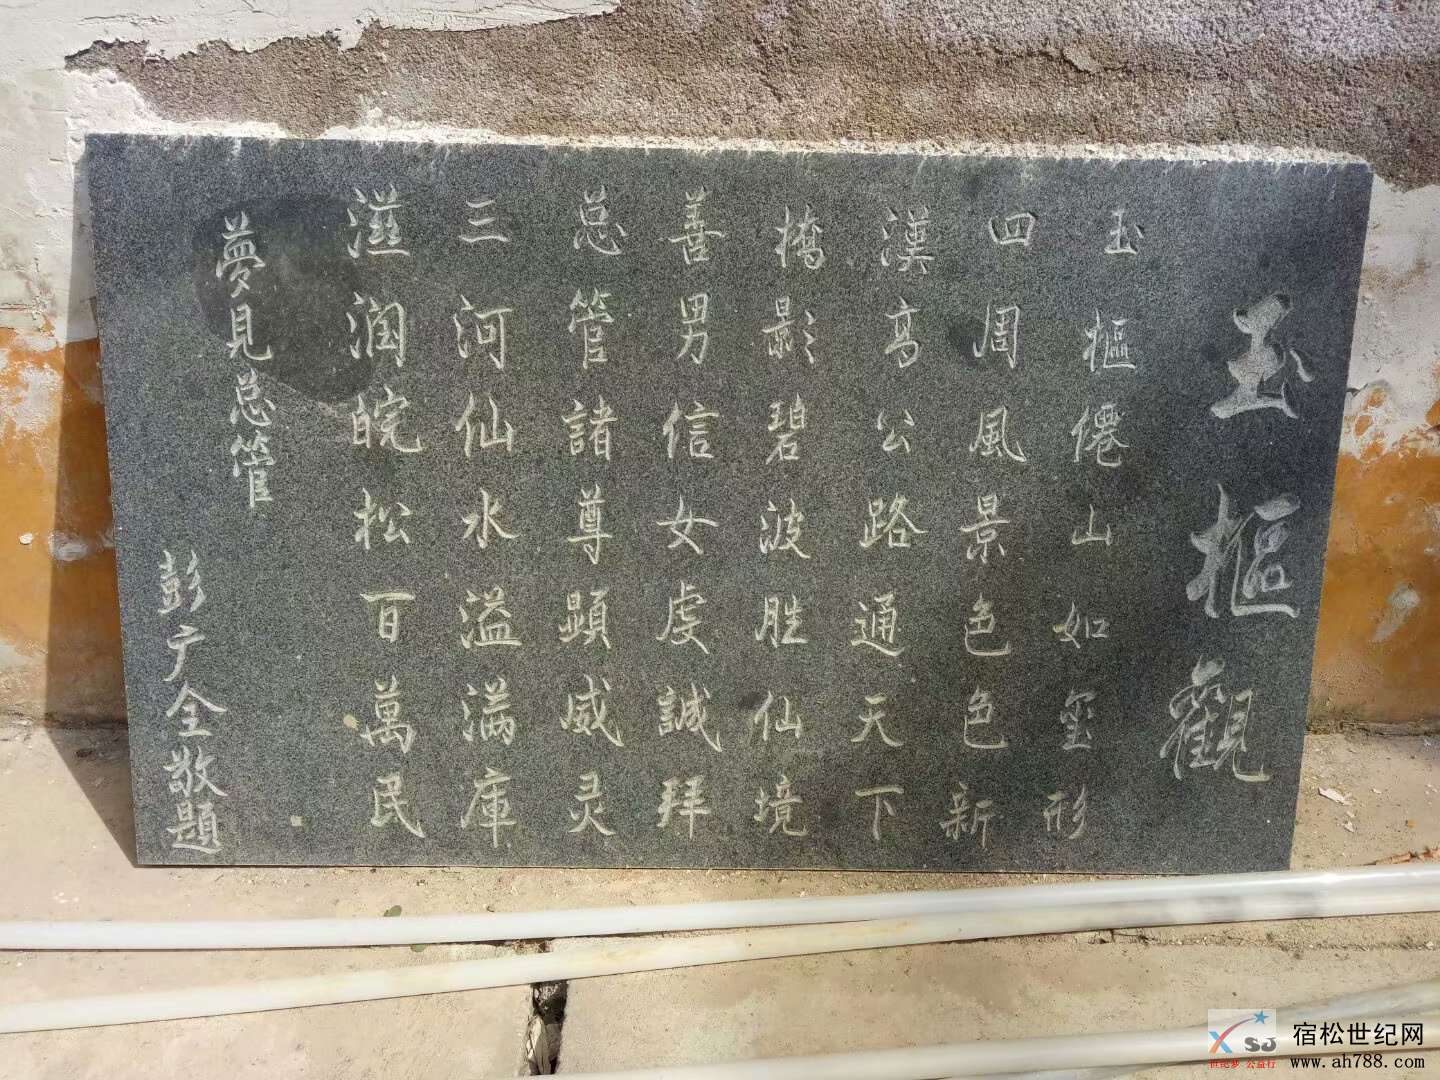 玉樞觀
玉樞僊山如璽形
四周風景色色新
漢高公路通天下
橋影碧波胜仙境
善男信女虔誠拜
总管諸尊顯威灵
三河仙水溢满庫
滋润皖松百萬民
夢見总管
彭广全敬題
XSJ
世纪梦 公益行
宿松世纪网
www.ah788.com